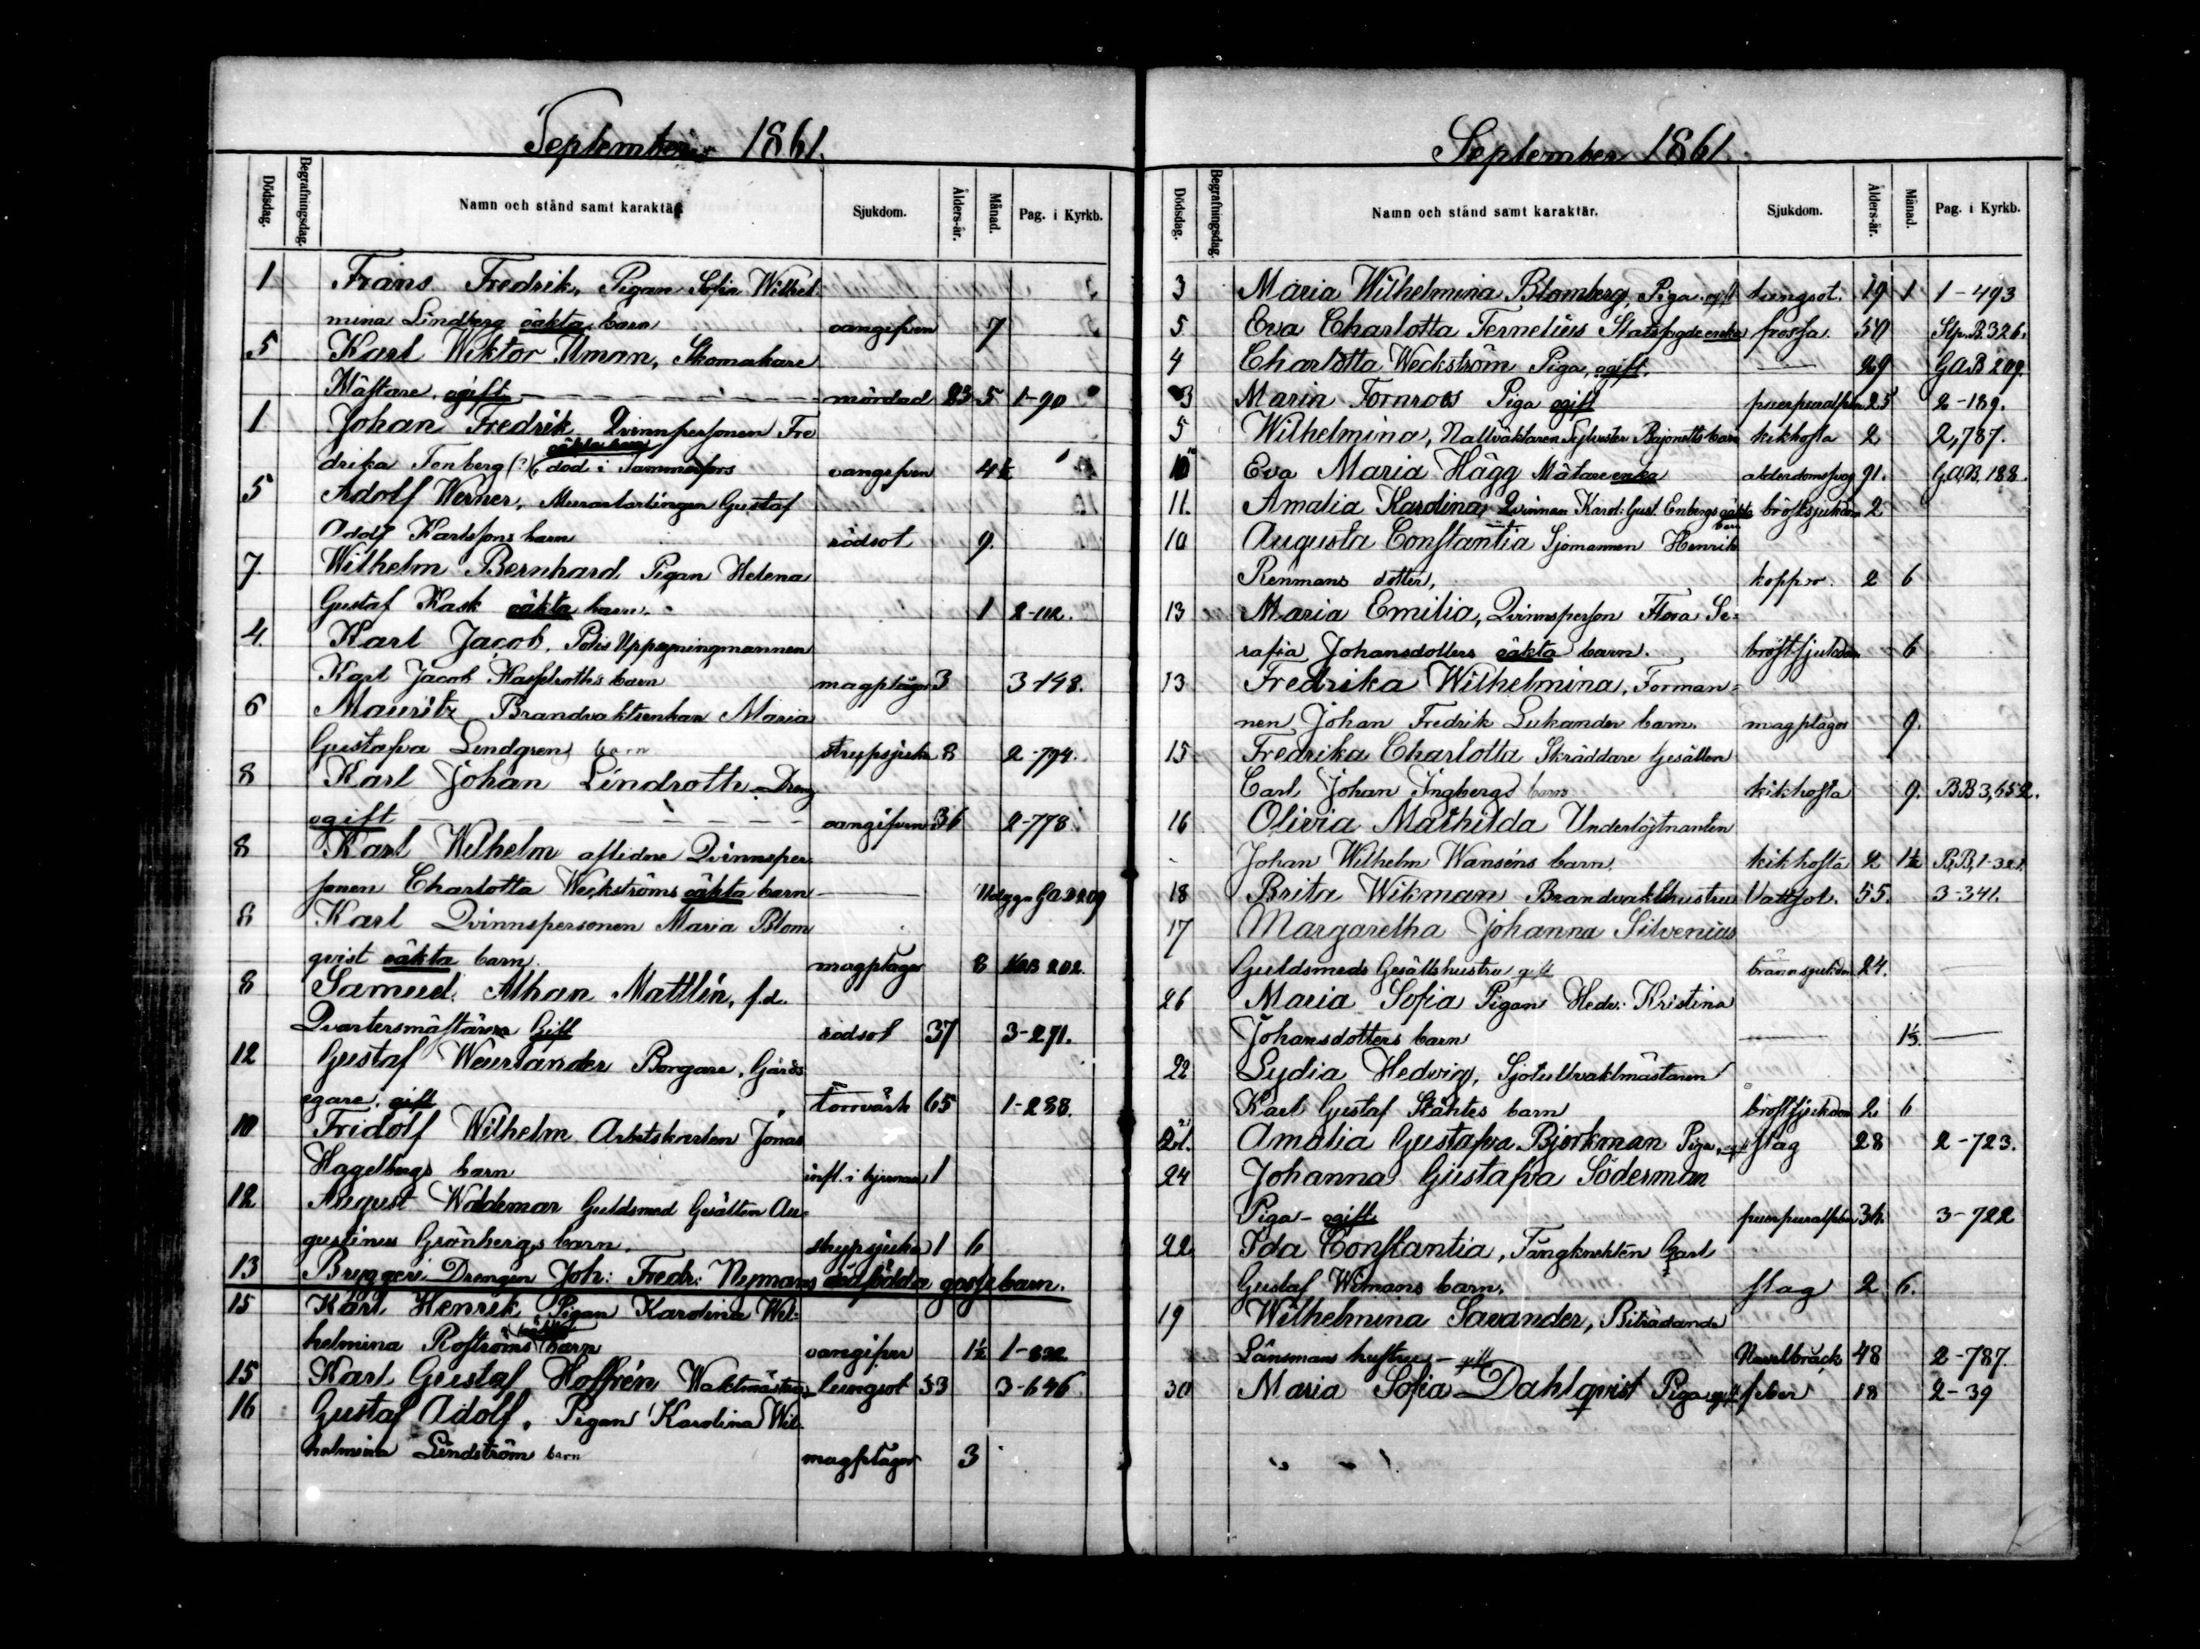 September 1861.
Dödsdag. Begrafningsdag. Namn och stånd samt karaktär Sjukdom. Ålders-år. Månad. Pag. i Kyrkb.
1 Frans Fredrik, Pigan Sofia Wilhel-
mina Lindberg oäkta barn oangifven 7
5 Karl Wiktor Ilman, Skomakare
Mästare, ogift mördad 23 5 1-90
1 Johan Fredrik Qvinnpersonen Fre
oäkta barn
drika Tenberg (?), död i Tammerfors oangifven 4½
5 Adolf Werner, Gustaf
Adolf Karlssons barn rödsot 9.
7 Wilhelm Bernhard Pigan Helena
Gustaf Kask oäkta barn. 1 2-112.
4. Karl Jacob, Polis Uppsyningmannen
Karl Jacob barn magplågor 3 3-148.
6 Mauritz Brandvaktsenkan Maria
Gustafva Lindgrens barn strypsjuka 8 2-794.
8 Karl Johan Lindroth Dreng
ogift oangifven 36 2-778
8 Karl Wilhelm aflidne Qvinnsper
sonen Charlotta Weckströms oäkta barn — 11 dygn G.A.B 209
8 Karl Qvinnspersonen Maria Blom
qvist oäkta barn. magplågor 8 202.
8 Samuel Mattlin, f.d.
Qvartersmästaren Gift rödsot 37 3-271.
12 Gustaf Weurlander Borgare, Gårds
egare, gift torrvärk 65 1-288.
10 Fridolf Wilhelm Arbetskarlen Jonas
Hagelbergs barn infl. i hjernan 1
12 August Woldemar Guldsmed Gesällen Au-
gustinus Grönbergs barn. strypsjuka 1 6
13 Bryggeri Drengen Joh: Fredr: Nymans dödfödda gossebarn.
15 Karl Henrik Pigan Karolina Wil-
oäkta
helmina Roströms barn oangifven 1½ 1-832
15 Karl Gustaf Hoffrén Waktmästare lungsot 53 3-646
16 Gustaf Adolf, Pigan Karolina Wil-
helmina Lindström barn magplågor 3
September 1861.
Dödsdag. Begrafningsdag. Namn och stånd samt karaktär. Sjukdom. Ålders-år. Månad. Pag. i Kyrkb.
3 Maria Wilhelmina Blomberg, Piga ogift lungsot. 19 1 1-493
5 Eva Charlotta Ternelius enka frossa. 50 Stp.B.326.
4 Charlotta Weckström Piga, ogift. — 29 G.A.B 209.
3 Maria Tornroos Piga ogift puerperalfeber 25 2-189.
5 Wilhelmina, Nattväktaren Sylvester Bajonetts barn kikhosta 2 2,787.
10 Eva Maria Hägg Mätare enka alderdomssvag 91. G.A.B. 188.
11. Amalia Karolina, Qvinnan Karol: Gust. Enbergs oäkta bröstsjukdom 2
barn
10 Augusta Constantia Sjömannen Henrik
Renmans dotter, koppor 2 6
13 Maria Emilia, Qvinnsperson Flora Se-
rafia Johansdotters oäkta barn. bröstsjukdom 6
13 Fredrika Wilhelmina, Forman-
nen Johan Fredrik Lukander barn. magplågor 9.
15 Fredrika Charlotta Skräddare Gesällen
Carl Johan Ingbergs barn kikhosta 9. B.B 3,652.
16 Olivia Mathilda Underlöjtnanten
Johan Wilhelm Wanséns barn. kikhosta 2 1½ B.B, 1-321
18 Brita Wikman Brandvaktshustru Vattsot. 55. 3-341.
17 Margaretha Johanna Silvenius
Guldsmeds Gesällshustru gift 24. —
26 Maria Sofia Pigan Hedv: Kristina
Johansdotters barn — —
22 Lydia Hedvig, Sjötullvaktmästaren
Karl Gustaf Stähles barn bröstsjukdom 2 6
21. Amalia Gustafva Björkman Piga, ogift slag 28 2-723.
24 Johanna Gustafva Söderman
Piga - ogift puerperalfeber 36. 3-722
22 Ida Constantia, Fångknekten Carl
Gustaf Wimans barn. slag 2 6.
19 Wilhelmina Savander, Biträdande
Länsmans hustru - gift Navelbråck 48 2-787.
30 Maria Sofia Dahlqvist Piga ogift feber 18 2-39